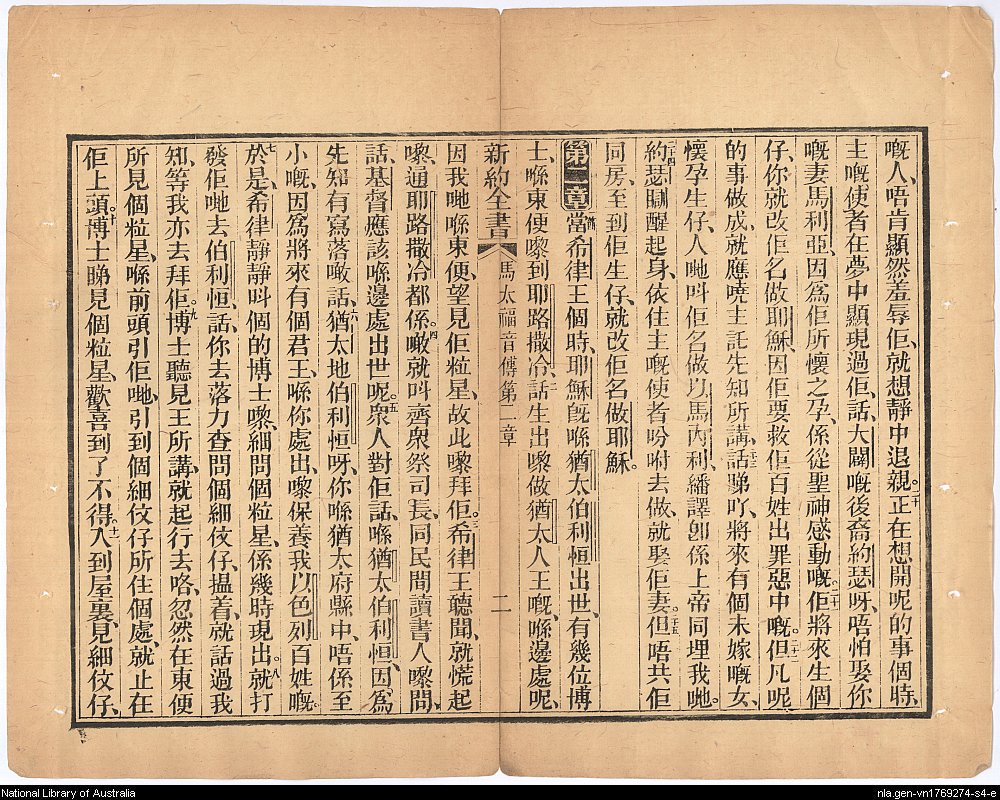 嘅人、唔肯顯然羞辱佢、就想靜中退親。二十正在想開呢的事個時、
主嘅使者在夢中顯現過佢、話、大闢嘅後裔約瑟呀、唔怕娶你
嘅妻馬利亞、因為佢所懷之孕、係從聖神感動嘅。二十一佢將來生個
仔、你就改佢名做耶穌、因佢要救佢百姓出罪惡中嘅。二十二但凡呢
的事做成、就應曉主託先知所講、二十三話睇吖、將來有個未嫁嘅女、
懷孕生仔、人哋呌佢名做以馬內利、繙譯卽係上帝同埋我哋。
二十四約瑟瞓醒起身、依住主嘅使者吩咐去做、就娶佢妻。二十五但唔共佢
同房、至到佢生仔、就改佢名做耶穌。
第二章當希律王個時、耶穌旣喺猶太伯利恒出世、有幾位博
士、喺東便嚟到耶路撒冷、二話生出嚟做猶太人王嘅、喺邊處呢、
新約全書 馬太福音傳第二章 二
因我哋喺東便、望見佢粒星、故此嚟拜佢。三希律王聽聞、就慌起
嚟、通耶路撒冷都係。四噉就呌齊衆祭司長、同民間讀書人嚟問、
話、基督應該喺邊處出世呢。五衆人對佢話、喺猶太伯利恒、因為
先知有寫落噉話、六猶太地伯利恒呀、你喺猶太府縣中、唔係至
小嘅、因為將來有個君王、喺你處出、嚟保養我以色列百姓嘅。
七於是希律靜靜呌個的博士嚟、細問個粒星、係幾時現出。八就打
發佢哋去伯利恒、話、你去落力查問個細伩仔、揾着、就話過我
知、等我亦去拜佢。九博士聽見王所講、就起行去咯、忽然在東便
所見個粒星、喺前頭引佢哋、引到個細伩仔所住個處、就止在
佢上頭。十博士睇見個粒星、歡喜到了不得。十一入到屋裏、見細伩仔、
National Library of Australia
nla.gen-vn1769274-s4-e